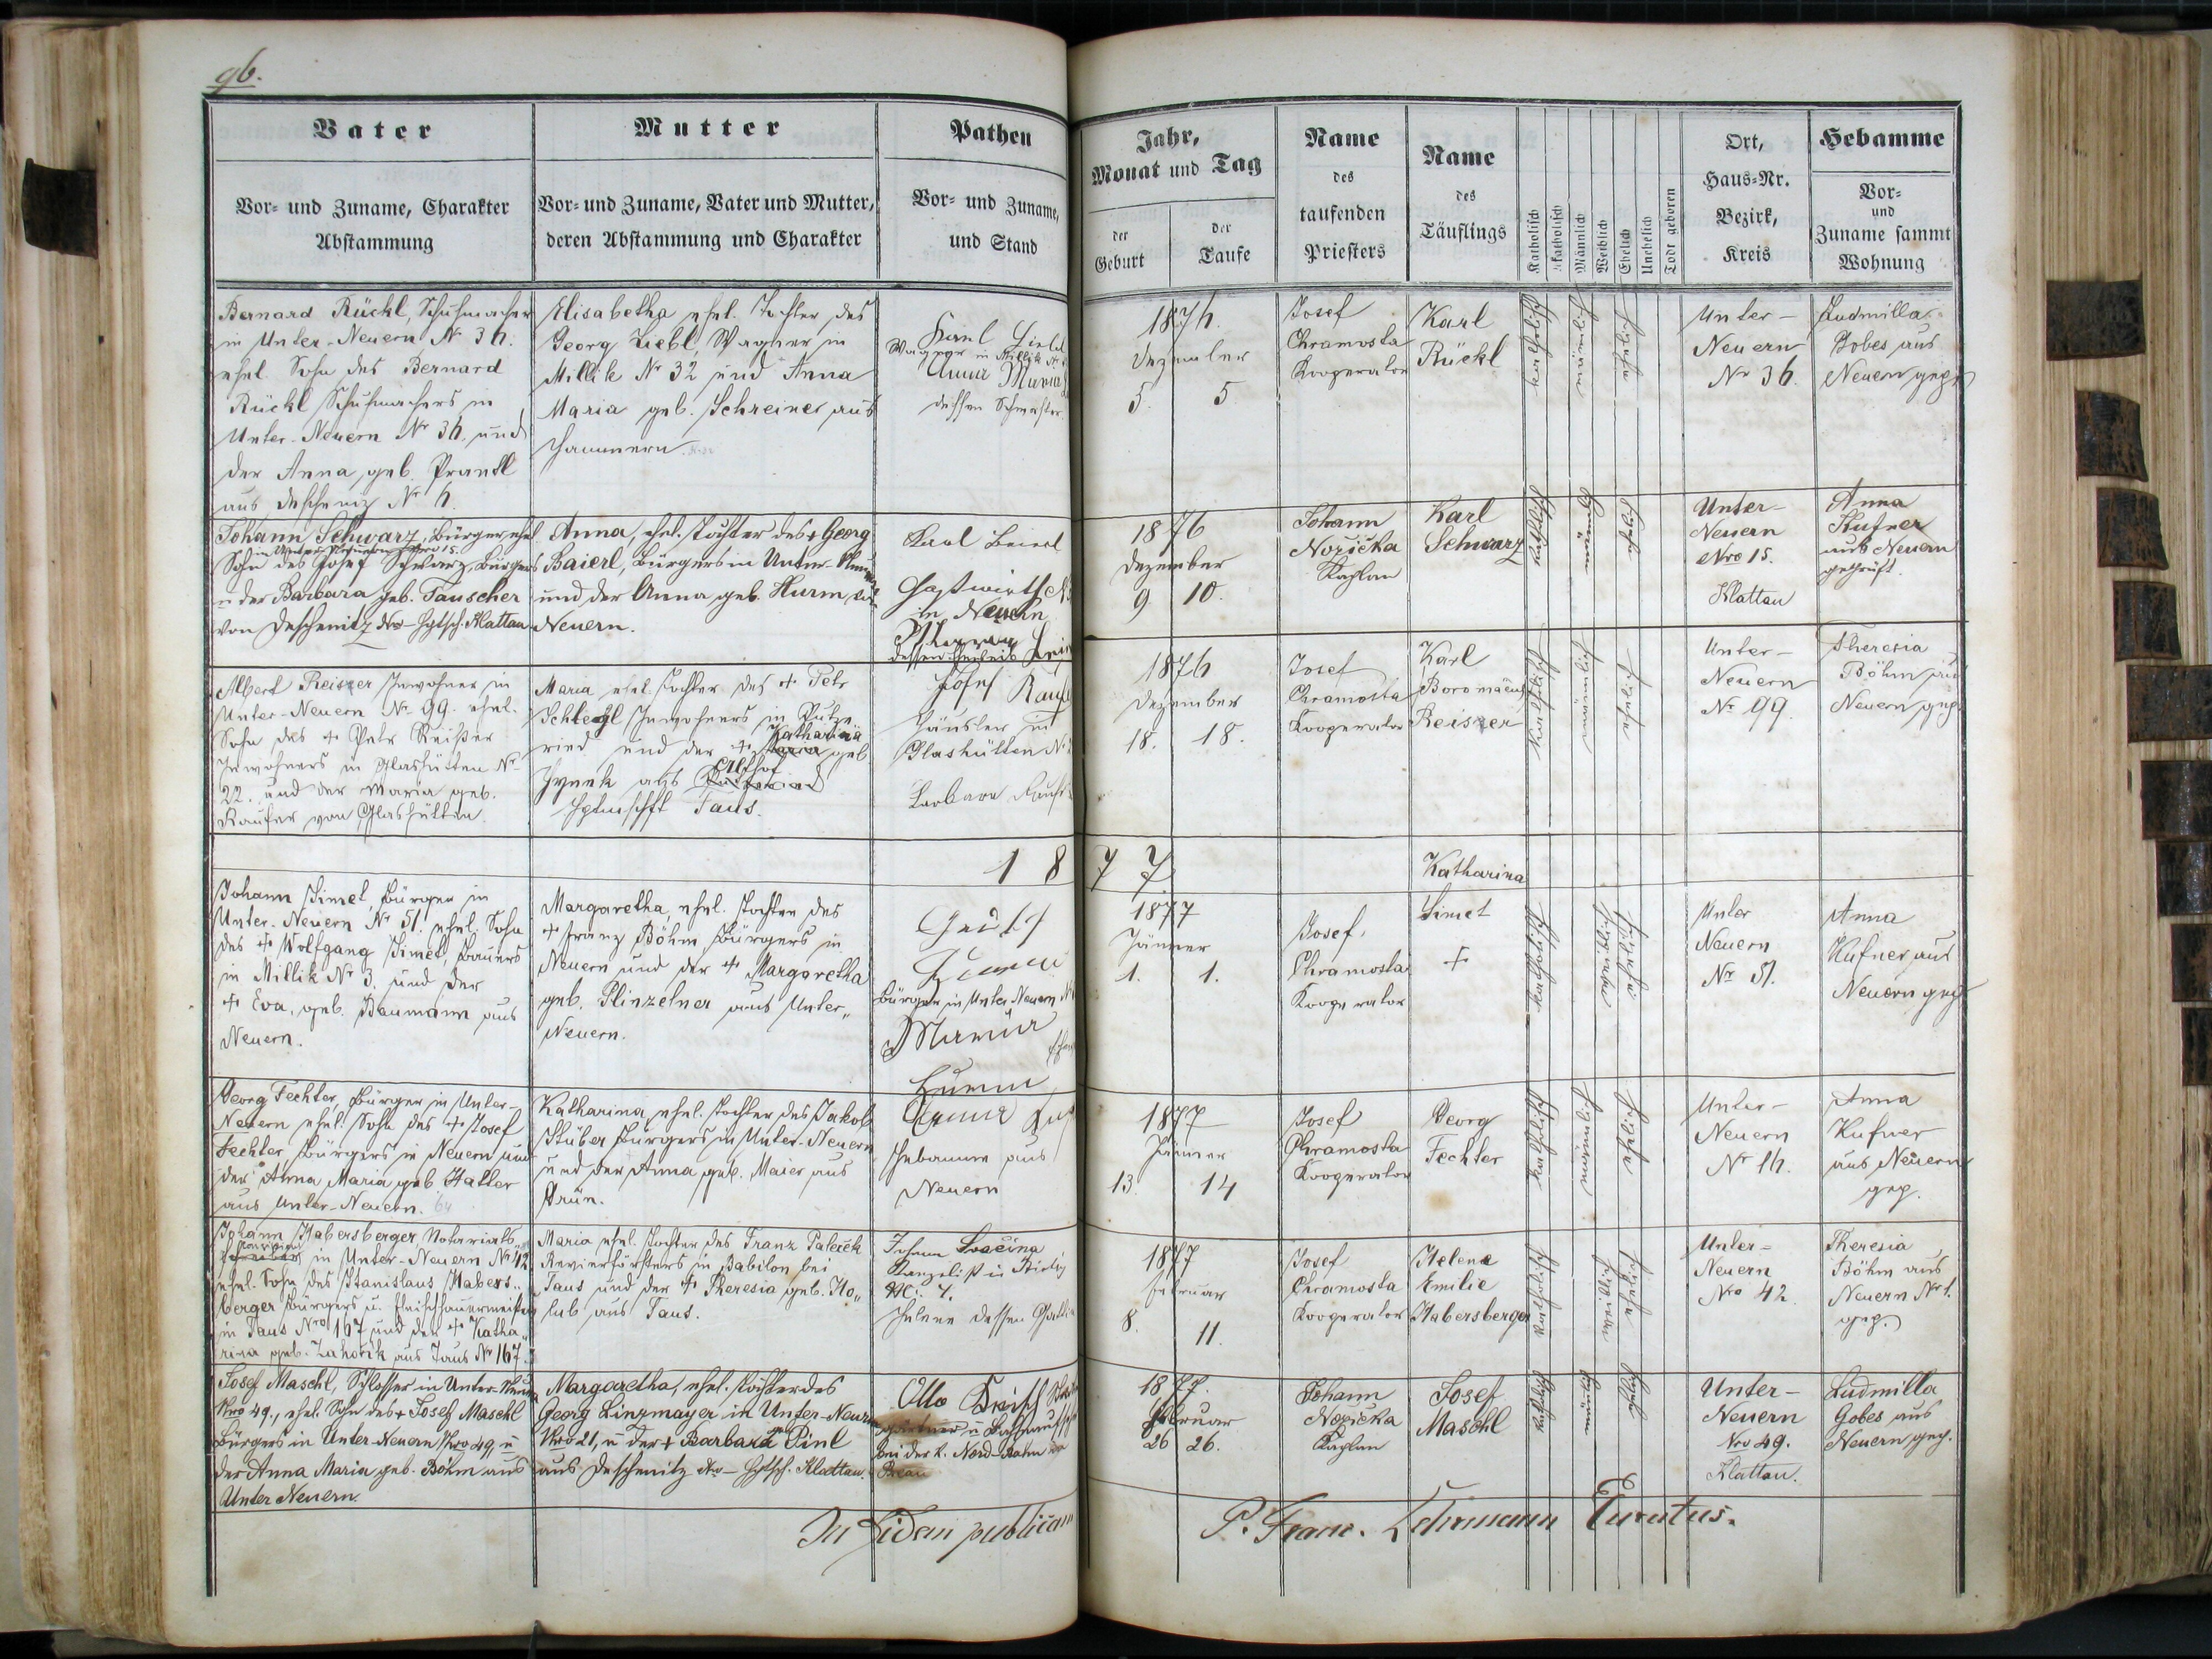 96.
Vater
Vor- und Zuname, Charakter
Abstammung
Mutter
Vor- und Zuname, Vater und Mutter,
deren Abstammung und Charakter
Pathen
Vor- und Zuname,
und Stand
Bernard Rückl, Schuhmacher
in Unter-Neuern No 36.
ehel. Sohn des Bernard
Rückl Schuhmachers in
Unter-Neuern Nr 36. und
der Anna, geb. Prantl
aus Deschenitz Nr 6.
Elisabetha ehel. Tochter des
Georg Liebl, Wagner in
Millik Nr 32 und Anna
Maria geb. Schreiner aus
Hammern
Karl Liebl
Wagner in Millik
Anna Maria
dessen Schwester.
Johann Schwarz, Bürger, ehel
in Unter Neuern Nro 15.
Sohn des Josef Schwarz, Bürgers
u der Barbara geb. Tauscher
von Deschenitz Nro - Hptsch. Klattau
Anna, ehel. Tochter des + Georg
Baierl, Bürgers in Unter-Neuern
und der Anna geb. Hurm aus
Neuern.
Karl Beierl
Gastwirth
in Neuern
dessen
Albert Reiszer Inwohner in
Unter-Neuern Nr. 99. ehel.
Sohn des + Petr Reißer
Inwohners in Glashütten Nr
22. und der Maria geb.
Raufer von Glashütten.
Maria ehel. Tochter des + Petr
Schlegl Inwohners in
ried und der + Katharina geb
Hynek aus
Taus.
Josef
Häusler in
Glashütten Nr
Barbara
1 8
Johann Simet, Bürger in
Unter-Neuern Nr 51. ehel. Sohn
des + Wolfgang Simet, Bauers
in Millik Nr 3. und der
+ Eva, geb. Baumann aus
Neuern.
Margaretha, ehel. Tochter des
+ Franz Böhm Bürgers in
Neuern und der + Margaretha
geb. Plinzelner aus Unter„
Neuern.
Bürger in Unter Neuern
Maria
Georg Fechter, Bürger in Unter-
Neuern ehel. Sohn des + Josef
Fechter, Bürgers in Neuern und
der Anna Maria geb Haller
aus Unter-Neuern.
Katharina, ehel. Tochter des Jakob
Stüber Bürgers in Unter-Neuern
und der Anna geb. Maier aus
Grün.
Anna
Hebamme aus
Neuern
Johann Habersberger Notariats
in Unter-Neuern Nr 42
ehel. Sohn des Stanislaus Habers„
berger Bürgers u. Fleischhauermeister
in Taus Nro 167 und der + Katha„
rina geb. Zahořik aus Taus Nr 167.
Maria ehel. Tochter des Franz Paleček
Revierförsters in Babilon bei
Taus und der + Theresia geb. Ho„
lub aus Taus.
Johann Svačina
Kanzelist in
Nr. 4.
Helene dessen Gattin
Josef Maschl, Schlosser in Unter-Neuern
Nro 49., ehel. Sohn des + Josef Maschl
Bürgers in Unter-Neuern Nro 49, u
der Anna Maria geb. Böhm aus
Unter Neuern.
Margaretha, ehel. Tochter des
Georg Linzmayer in Unter-Neuern
Nro 21, u der + Barbara geb Pinl
aus Deschenitz Nro - Hptsch. Klattau.
Otto
bei der k. Nord-Bahn
In fidem publicam
Jahr,
Monat und Tag
der
Geburt
der
Taufe
Name
des
taufenden
Priesters
Name
des
Täuflings
Katholisch
Akatholisch
Männlich
Weiblich
Ehelich
Unehelich
Todt geboren
Ort,
Haus-Nr.
Bezirk,
Kreis
Hebamme
Vor-
und
Zuname sammt
Wohnung
1876.
Dezember
5. 5
Josef
Chramosta
Kooperator
Karl
Rückl
katholisch
männ
ehelich
Unter-
Neuern
Nr 36.
Ludmilla
Gobes aus
Neuern gepr
1876
Dezember
9. 10.
Johann
Nožička
Kaplan
Karl
Schwarz
katholisch
männ
ehelich
Unter-
Neuern
Nro 15.
Klattau
Anna
Kufner
aus Neuern
geprüft.
1876
Dezember
18. 18.
Josef
Chramosta
Kooperator
Karl
Boromäeus
Reiszer
katholisch
männ
ehelich
Unter-
Neuern
Nr 99.
Theresia
Böhm aus
Neuern gep
7 7
1877
Jänner
1. 1.
Josef
Chramosta
Kooperator
Katharina
Simet
+
katholisch
ehelich
Unter
Neuern
Nr 51.
Anna
Kufner aus
Neuern gep
1877
Jänner
13. 14
Josef
Chramosta
Kooperator
Georg
Fechter
katholisch
männ
ehelich
Unter-
Neuern
Nr 16.
Anna
Kufner
aus Neuern
gep.
1877
Februar
8. 11.
Josef
Chramosta
Kooperator
Helena
Emilie
Habersberger
katholisch
ehelich
Unter-
Neuern
Nro 42
Theresia
Böhm aus
Neuern Nr 1.
gep.
1877.
Februar
26 26.
Johann
Nožička
Kaplan
Josef
Maschl
katholisch
männ
ehelich
Unter-
Neuern
Nro 49.
Klattau.
Ludmilla
Gobes aus
Neuern gep.
P. Franc. Lehrmann Curatus.